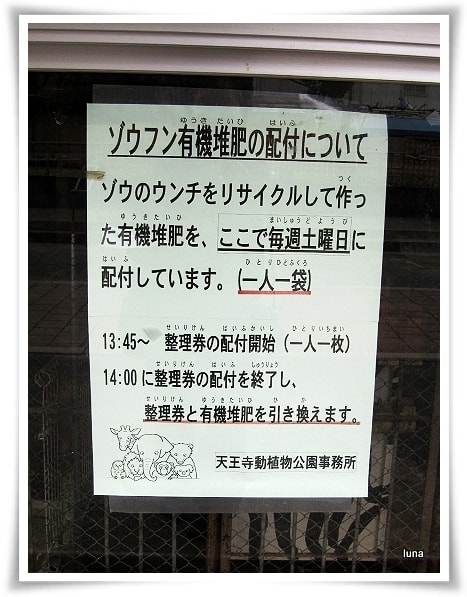 ゆうき たいひ はいふ
ゾウフン有機堆肥の配付について
つく
ゾウのウンチをリサイクルして作っ
ゆうきたいひ まいしゅうどようび
た有機堆肥を、ここで毎週土曜日に
はいふ ひとりひとふくろ
配付しています。(一人一袋)
せいりけん はいふかいし ひとりいちまい
13:45～ 整理券の配付開始（一人一枚）
せいりけん はいふ しゅうりょう
14:00に整理券の配付を終了し、
せいりけん ゆうきたいひ ひ か
整理券と有機堆肥を引き換えます。
天王寺動植物公園事務所
luna